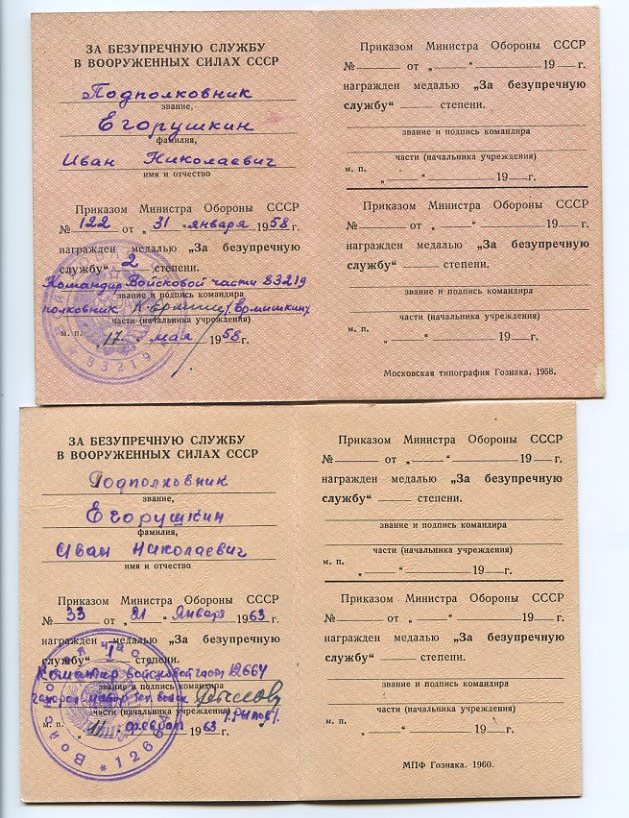 ЗА БЕЗУПРЕЧНУЮ СЛУЖБУ
В ВООРУЖЕННЫХ СИЛАХ СССР
Подполковник
звание,
Егорушкин
фамилия,
Иван Николаевич
имя и отчество
Приказом Министра Обороны СССР
№ 122 от „ 31 “ января 1958 г.
награжден медалью „За безупречную
службу“ 2 степени.
Командир Войсковой части 83219
звание и подпись командира
полковник Ермишкин
части (начальника учреждения)
м. п. „ 17 “ мая 1958 г.
83219
Приказом Министра Обороны СССР
№ от „ “ 19 г.
награжден медалью „За безупречную
службу“ степени.
звание и подпись командира
части (начальника учреждения)
м. п. „ “ 19 г.
Приказом Министра Обороны СССР
№ от „ “ 19 г.
награжден медалью „За безупречную
службу“ степени.
звание и подпись командира
части (начальника учреждения)
м. п. „ “ 19 г.
Московская типография Гознака. 1958.
ЗА БЕЗУПРЕЧНУЮ СЛУЖБУ
В ВООРУЖЕННЫХ СИЛАХ СССР
Подполковник
звание,
Егорушкин
фамилия,
Иван Николаевич
имя и отчество
Приказом Министра Обороны СССР
№ 33 от „ 31 “ Января 1963 г.
награжден медалью „За безупречную
службу“ I степени.
Командир войсковой части 12664
звание и подпись командира
генерал майор войск
части (начальника учреждения)
м. п. „ 11 “ февраля 1963 г.
Войсковая часть * 12664
Приказом Министра Обороны СССР
№ от „ “ 19 г.
награжден медалью „За безупречную
службу“ степени.
звание и подпись командира
части (начальника учреждения)
м. п. „ “ 19 г.
Приказом Министра Обороны СССР
№ от „ “ 19 г.
награжден медалью „За безупречную
службу“ степени.
звание и подпись командира
части (начальника учреждения)
м. п. „ “ 19 г.
МПФ Гознака. 1960.